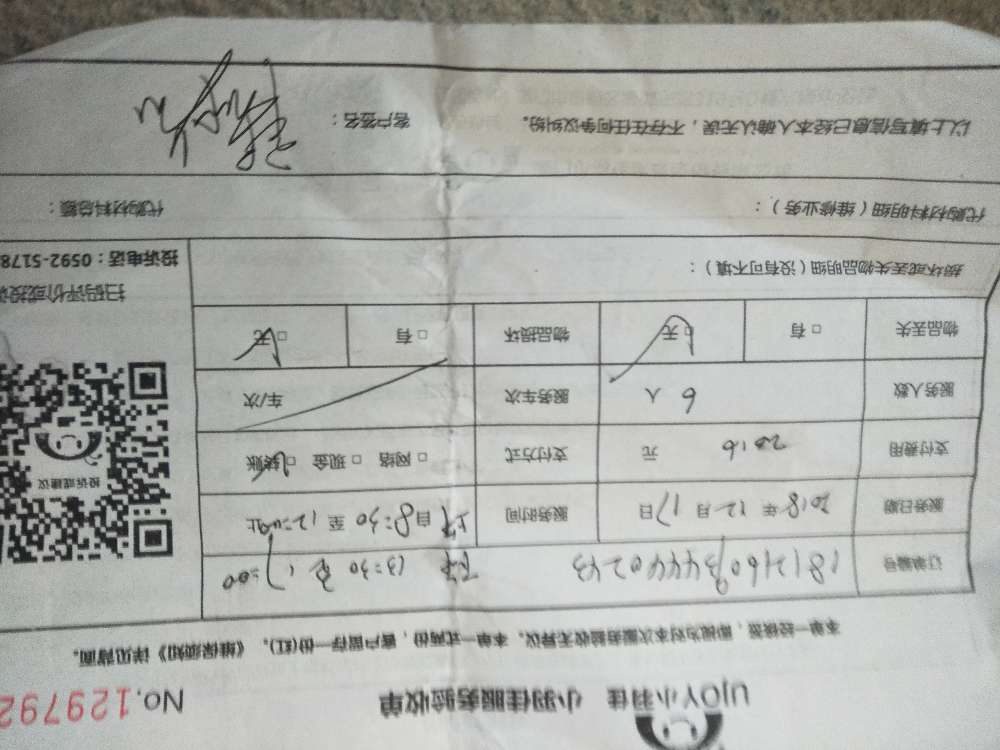 UJOY小羽佳 小羽佳服务验收单 No.129792
本单一经核签,即视为对本次服务验收无异议。本单一式两份,客户留存一份(红)。《维保须知》详见背面。
订单编号 下午 13:30至17:00
服务日期 2018年12月17日 服务时间 上午 自8:30至12:00止
支付费用 2016 元 支付方式 □网络 □现金 □转账
服务人数 6 人 服务车次 车/次
物品丢失 □有 □无 物品损坏 □有 □无
损坏或丢失物品明细(没有可不填):
投诉或建议
扫码评价或投诉
投诉电话:0592-5178
代购材料明细(维修业务): 代购材料总额:
以上填写信息已经本人确认无误,不存在任何争议纠纷。 客户签名: